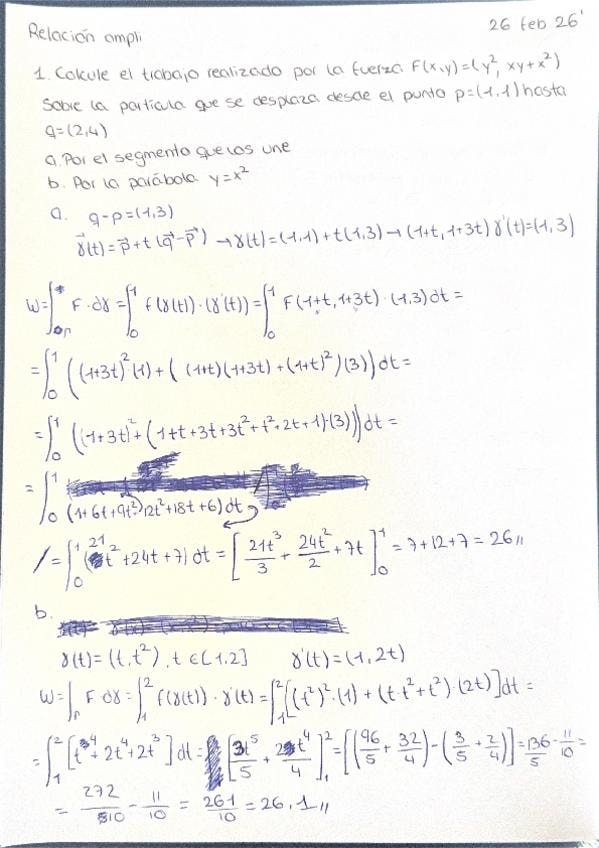 Relación ampli
26 feb 26'
1. Calcule el trabajo realizado por la fuerza F(x,y)=(y², xy+x²)
sobre la partícula que se desplaza desde el punto p=(1,1) hasta
q=(2,4)
a. Por el segmento que los une
b. Por la parábola y=x²
a. q-p=(1,3)
γ⃗(t)=p⃗+t(q⃗-p⃗) → γ(t)=(1,1)+t(1,3)→(1+t,1+3t) γ'(t)=(1,3)
W=∫ F·dγ=∫₀¹ f(γ(t))·(γ'(t))=∫₀¹ F(1+t,1+3t)·(1,3)dt=
=∫₀¹ ((1+3t)²(1)+((1+t)(1+3t)+(1+t)²)(3))dt=
=∫₀¹ ((1+3t)²+(1+t+3t+3t²+t²+2t+1)·(3))dt=
=∫₀¹
(1+6t+9t²+12t²+18t+6)dt
=∫₀¹ (21t²+24t+7)dt=[21t³/3+24t²/2+7t]₀¹=7+12+7=26//
b.
γ(t)=(t,t²), t∈[1,2] γ'(t)=(1,2t)
W=∫ᵣ F dγ=∫₁² f(γ(t))·γ'(t)=∫₁²[(t²)²·(1)+(t·t²+t²)·(2t)]dt=
=∫₁²[t⁴+2t⁴+2t³]dt=[3t⁵/5+2t⁴/4]₁²=[(96/5+32/4)-(3/5+2/4)]=136/5-11/10=
=272/10-11/10=261/10=26,1//